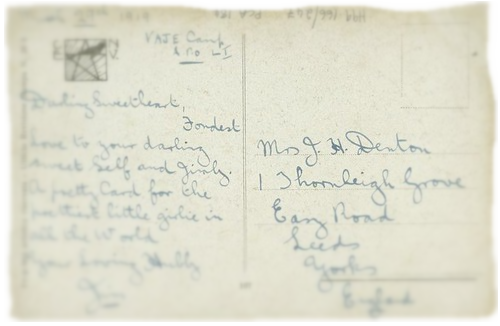 VAJE Camp
Darling Sweetheart,
Fondest
love to your darling
sweet Self and Girly.
A pretty Card for the
little girlie in
all the World
Your Loving Hubby
Mrs J. H. Denton
1 Thornleigh Grove
Easy Road
Leeds
Yorks
England